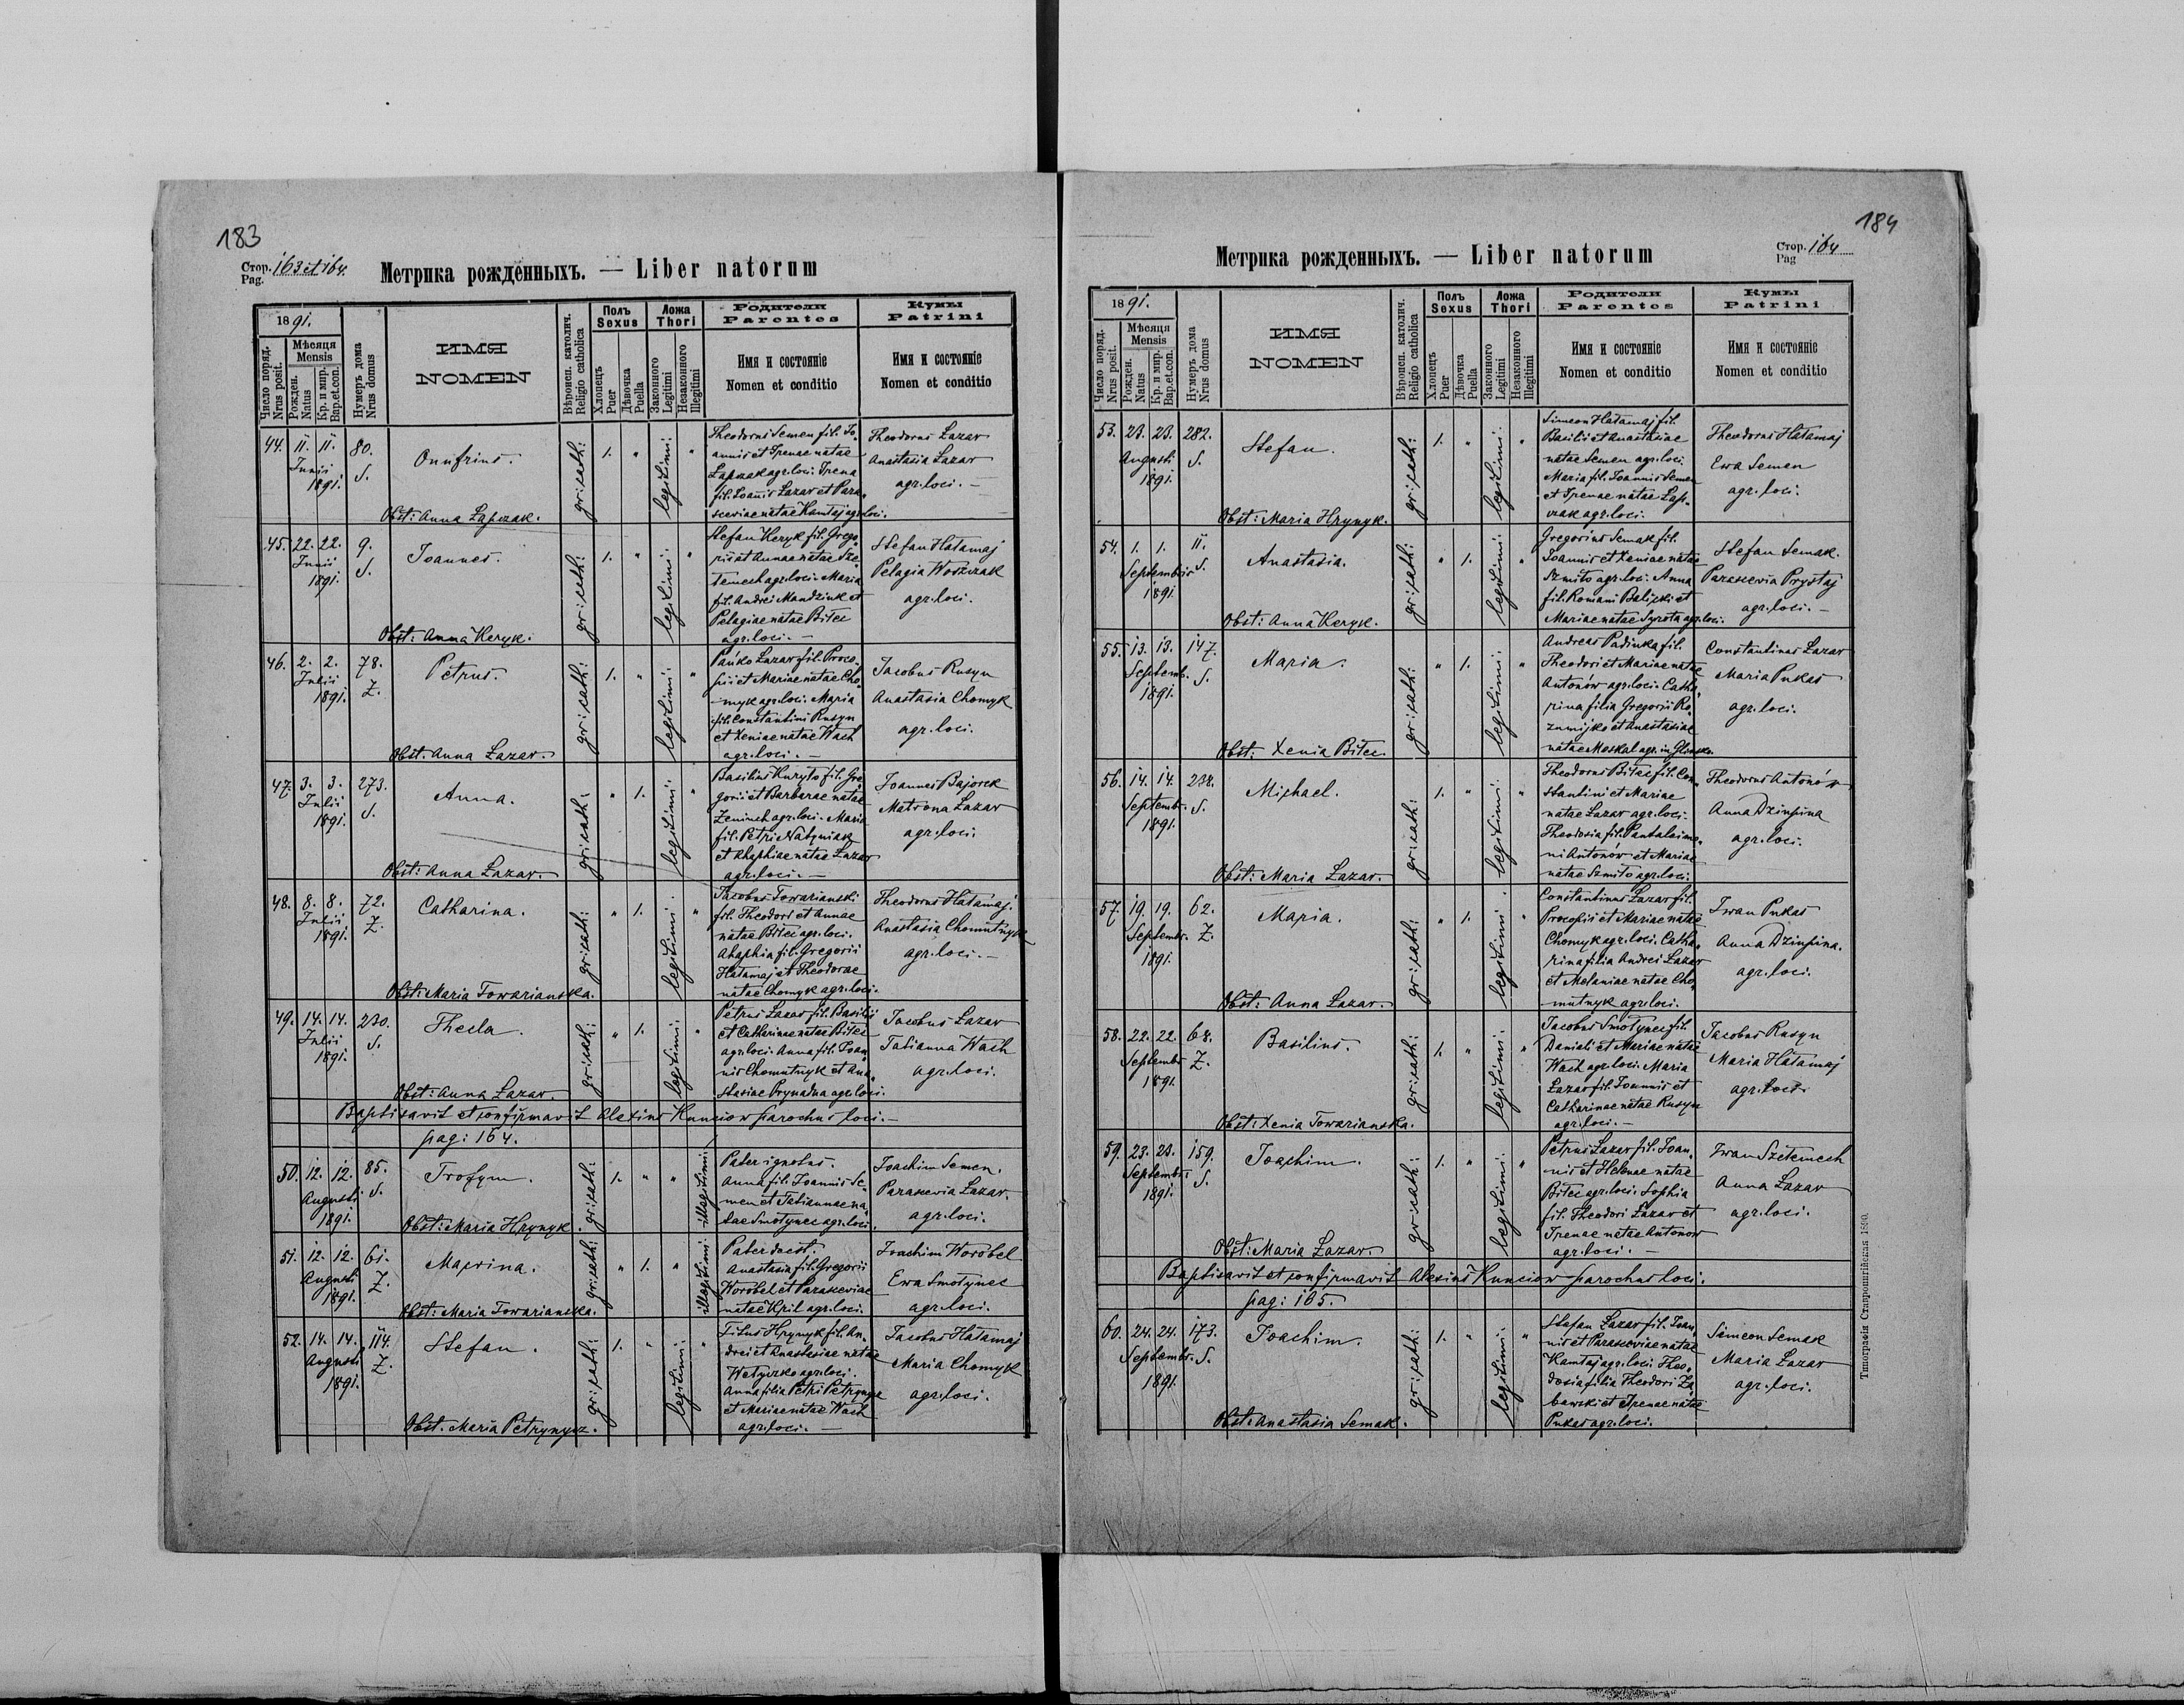 183
Стор. 163 et 164.
Pag.
Метрика рожденныхъ. — Liber natorum
1891.
Число поряд.
Nrus posit.
Мѣсяця
Mensis
Рожден.
Natus
Кр. и мир.
Bap.et.con.
Нумеръ дома
Nrus domus
ИМЯ
NOMEN
Вѣроисп. католич.
Religio catholica
Полъ
Sexus
Хлопецъ
Puer
Дѣвочка
Puella
Ложа
Thori
Законного
Legitimi
Незаконного
Illegitimi
Родители
Parentes
Имя и состояніе
Nomen et conditio
Кумы
Patrini
Имя и состояніе
Nomen et conditio
44. 11. 11. 80.
Junii S.
1891.
Onufrius.
Obst: Anna Łapczak.
gr: cath:
1. "
legitimi: "
Theodorus Semen fil. Jo-
annis et Irenae natae
Łapczak agr. loci. Irena
fil. Joannis Lazar et Para-
sceviae natae Kamtaj agr. loci.
Theodorus Lazar
Anastasia Lazar
agr. loci. —
45. 22. 22. 9.
Junii S.
1891.
Joannes.
Obst: Anna Keryk.
gr: cath:
1. "
legitimi: "
Stefan Keryk fil. Grego-
rii et Annae natae Sze-
temech agr. loci. Maria
fil. Andrei Mandziuk et
Pelagiae natae Biłec
agr. loci. —
Stefan Hałamaj
Pelagia Woszczak
agr. loci.
46. 2. 2. 78.
Julii Z.
1891.
Petrus.
Obst: Anna Lazar.
gr: cath:
1. "
legitimi: "
Pańko Lazar fil. Proco-
pii et Mariae natae Cho-
myk agr. loci. Maria
fil. Constantini Rusyn
et Xeniae natae Wach
agr. loci. —
Jacobus Rusyn
Anastasia Chomyk
agr. loci.
47. 3. 3. 273.
Julii S.
1891.
Anna.
Obst: Anna Lazar.
gr: cath:
" 1.
legitimi: "
Basilius Kuryło fil. Gre-
gorii et Barbarae natae
Zeniuch agr. loci. Maria
fil. Petri Nabyniak
et Ahaphiae natae Lazar
agr. loci. —
Joannes Bajorek
Matrona Lazar
agr. loci.
48. 8. 8. 72.
Julii Z.
1891.
Catharina.
Obst: Maria Towarianska.
gr: cath:
" 1.
legitimi: "
Jacobus Towarianski
fil. Theodori et Annae
natae Bitec agr. loci.
Ahaphia fil. Gregorii
Hałamaj et Theodorae
natae Chomyk agr. loci.
Theodorus Hałamaj.
Anastasia Chomutnyk
agr. loci. —
49. 14. 14. 230.
Julii S.
1891.
Thecla.
Obst: Anna Lazar.
gr: cath:
" 1.
legitimi: "
Petrus Lazar fil. Basilii
et Catharinae natae Bitec
agr. loci. Anna fil. Joan-
nis Chomutnyk et Ana-
stasiae Prynadna agr. loci.
Jacobus Lazar
Tatianna Wach
agr. loci.
Baptisavit et confirmavit Alexius Kunciow parochus loci. —
pag: 164.
50. 12. 12. 85.
Augusti S.
1891.
Trofym.
Obst: Maria Hrynyk
gr: cath:
1. " "
illegitimi:
Pater ignotus.
Anna fil. Joannis Se-
men et Tatiannae na-
tae Smotynec agr. loci.
Joachim Semen.
Parascevia Lazar.
agr. loci.
51. 12. 12. 61.
Augusti Z.
1891.
Macrina.
Obst: Maria Towarianska.
gr: cath:
" 1. "
illegitimi:
Pater deest.
Anastasia fil. Gregorii
Worobel et Parasceviae
natae Kril agr. loci.
Joachim Worobel
Ewa Smotynec
agr. loci.
52. 14. 14. 114.
Augusti Z.
1891.
Stefan.
Obst. Maria Petrynycz.
gr: cath:
1. "
legitimi: "
Titus Hrynyk fil. An-
drei et Anastasiae natae
Wetyczko agr. loci.
Anna filia Petri Petrynycz
et Mariae natae Wach
agr. loci. —
Jacobus Hałamaj
Maria Chomyk
agr. loci.
184
Метрика рожденныхъ. — Liber natorum
Стор. 164
Pag
1891.
Число поряд.
Nrus posit.
Мѣсяця
Mensis
Рожден.
Natus
Кр. и мир.
Bap.et.con.
Нумеръ дома
Nrus domus
ИМЯ
NOMEN
Вѣроисп. католич.
Religio catholica
Полъ
Sexus
Хлопецъ
Puer
Дѣвочка
Puella
Ложа
Thori
Законного
Legitimi
Незаконного
Illegitimi
Родители
Parentes
Имя и состояніе
Nomen et conditio
Кумы
Patrini
Имя и состояніе
Nomen et conditio
53. 23. 23. 282.
Augusti S.
1891.
Stefan.
Obst: Maria Hrynyk.
gr: cath:
1. "
legitimi: "
Simeon Hałamaj fil.
Basilii et Anastasiae
natae Semen agr. loci.
Maria fil. Joannis Semen
et Irenae natae Łap-
czak agr. loci.
Theodorus Hałamaj
Ewa Semen
agr. loci.
54. 1. 1. 11.
Septembris S.
1891.
Anastasia.
Obst: Anna Keryk.
gr: cath:
" 1.
legitimi: "
Gregorius Semak fil.
Joannis et Xeniae natae
Szmiło agr. loci. Anna
fil. Romani Balicki et
Mariae natae Syrota agr. loci.
Stefan Semak.
Parascevia Prystaj
agr. loci. —
55. 13. 13. 147.
Septemb. S.
1891.
Maria.
Obst: Xenia Bitec.
gr: cath:
" 1.
legitimi: "
Andreas Padiuka fil.
Theodori et Mariae natae
Antonów agr. loci. Catha-
rina filia Gregorii Ro-
zumijko et Anastasiae
natae Moskal agr. in Glinsko.
Constantinus Lazar
Maria Pukas
agr. loci.
56. 14. 14. 238.
Septembr. S.
1891.
Michael.
Obst: Maria Lazar.
gr: cath:
1. "
legitimi: "
Theodorus Bitec fil. Con-
stantini et Mariae
natae Lazar agr. loci.
Theodosia fil. Pantaleimo-
ni Antonów et Mariae
natae Szmiło agr. loci.
Theodorus Antonów
Anna Dziupina
agr. loci.
57. 19. 19. 62.
Septembr. Z.
1891.
Maria.
Obst: Anna Lazar.
gr: cath:
" 1.
legitimi: "
Constantinus Lazar fil.
Procopii et Mariae natae
Chomyk agr. loci. Catha-
rina filia Andrei Lazar
et Melaniae natae Cho-
mutnyk agr. loci.
Iwan Pukas
Anna Dziupina.
agr. loci.
58. 22. 22. 68.
Septembr. Z.
1891.
Basilius.
Obst: Xenia Towarianska.
gr: cath:
1. "
legitimi: "
Jacobus Smotynec fil.
Danieli et Mariae natae
Wach agr. loci. Maria
Lazar fil. Joannis et
Catharinae natae Rusyn
agr. loci. —
Jacobus Rusyn
Maria Hałamaj
agr. loci.
59. 23. 23. 159.
Septembr. S.
1891.
Joachim.
Obst: Maria Lazar.
gr: cath:
1. "
legitimi: "
Petrus Lazar fil. Joan-
nis et Helenae natae
Bitec agr. loci. Sophia
fil. Theodori Lazar et
Irenae natae Antonow
agr. loci. —
Iwan Szetemech
Anna Lazar
agr. loci.
Baptisavit et confirmavit Alexius Kunciow parochus loci.
pag: 165.
60. 24. 24. 173.
Septembr. S.
1891.
Joachim.
Obst: Anastasia Semak.
gr: cath:
1. "
legitimi: "
Stefan Lazar fil. Joan-
nis et Parasceviae natae
Kamtaj agr. loci. Theo-
dosia filia Theodori Za-
bawski et Irenae natae
Pukas agr. loci.
Simeon Semak
Maria Lazar
agr. loci.
Типографія Ставропигійская 1890.